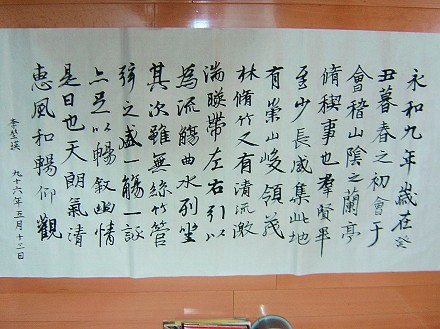 永和九年歲在癸
丑暮春之初會于
會稽山陰之蘭亭
脩稧事也羣賢畢
至少長咸集此地
有崇山峻領茂
林脩竹又有清流激
湍暎帶左右引以
為流觴曲水列坐
其次雖無絲竹管
弦之盛一觴一詠
亦足以暢敘幽情
是日也天朗氣清
惠風和暢仰觀
九十六年五月十三日